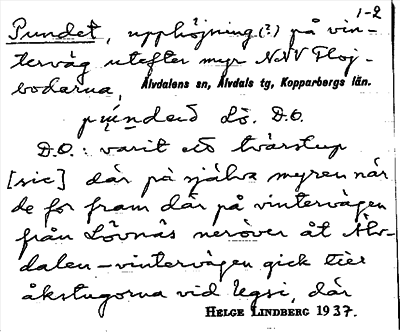 1-2
Pundet, upphöjning(?) på vin-
terväg utefter myr NNV Floj-
bodarna, Älvdalens sn, Älvdals tg, Kopparbergs län.
Lö. D.O.
D.O.: varit ett tvärstup
[sic] där på själva myren när
de for fram där på vintervägen
från Lövnäs neröver åt Älv-
dalen – vintervägen gick till
åkstugorna vid Ugsi, där
HELGE LINDBERG 1937.